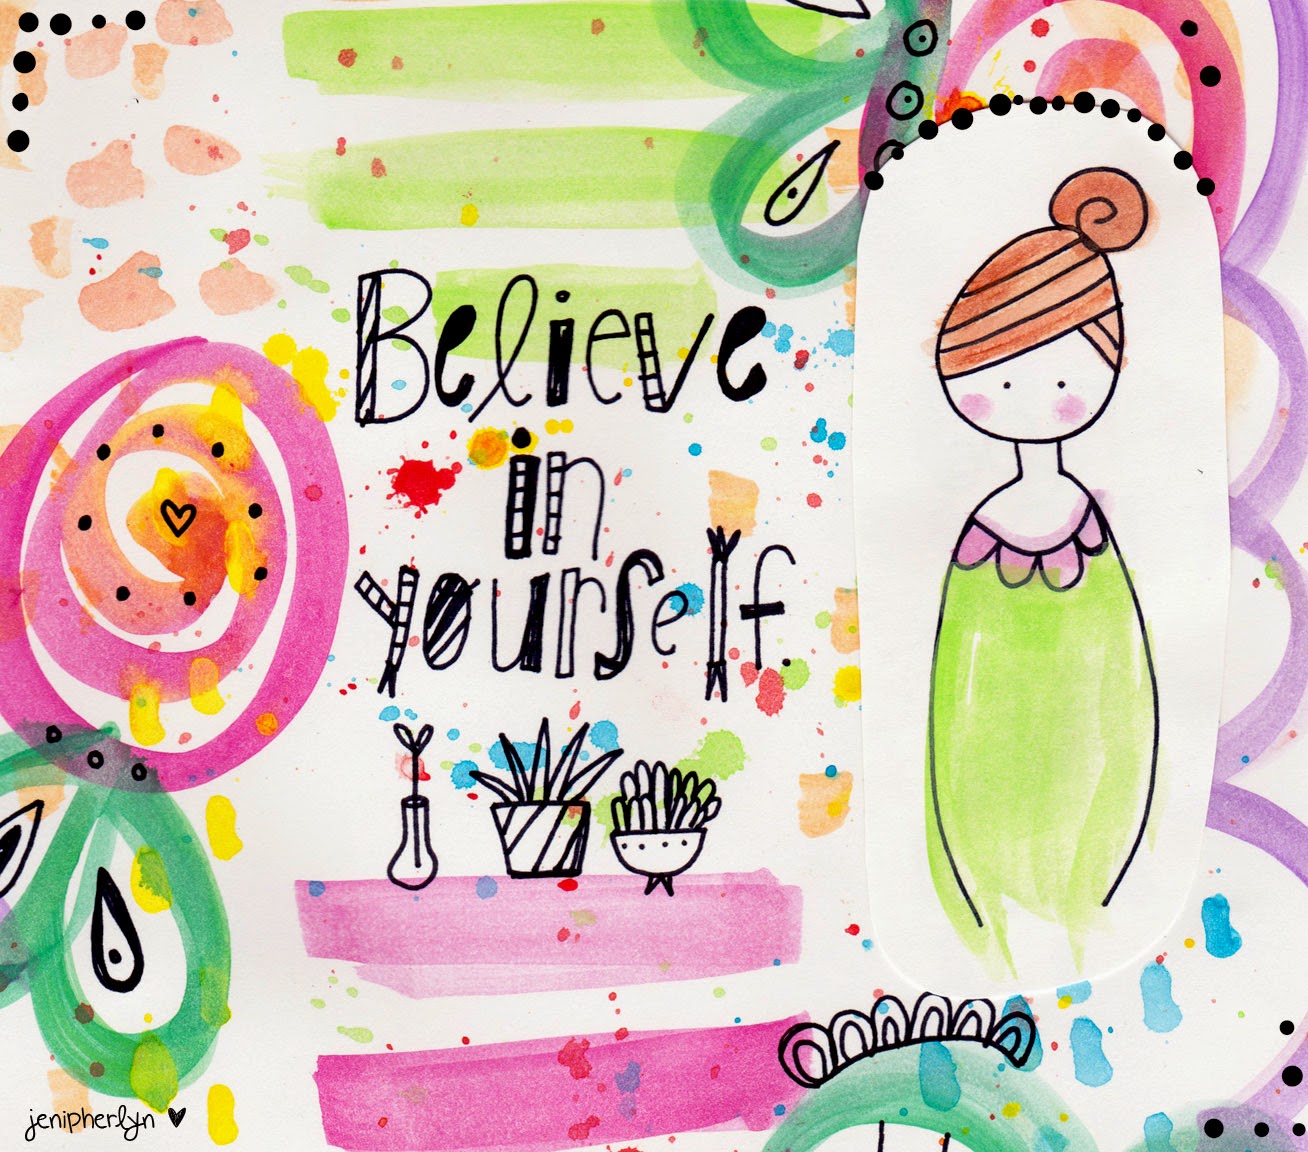 Believe
in
yourself.
jenipherlyn